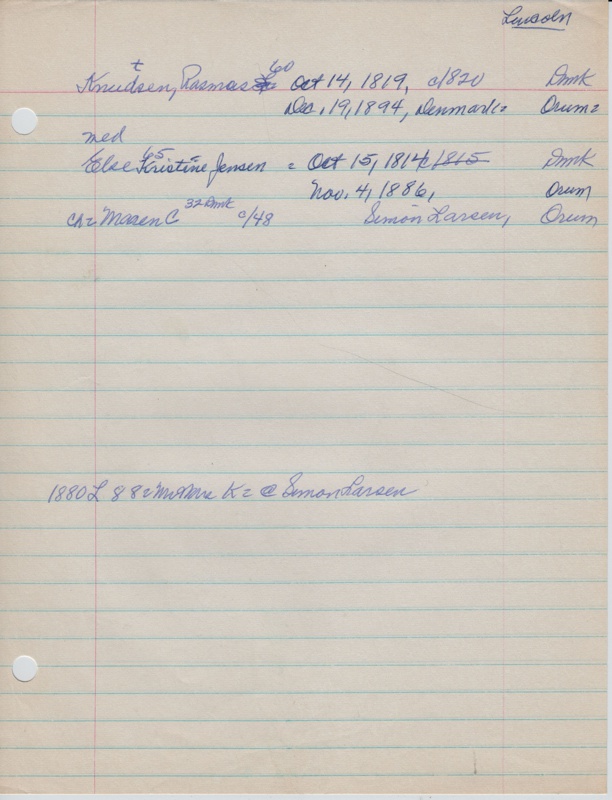 Lincoln
t 60
Knudsen, Rasmas Oct 14, 1819, c/1820 Dmk
Dec. 19, 1894, Denmark = Orum =
med
65
Else Kristine Jensen = Oct 15, 1814 c/1815 Dmk
Nov. 4, 1886, Orum
32 Dmk
ch = Maren C c/48 Simon Larsen, Orum
1880 L 88 = K = @ Simon Larsen